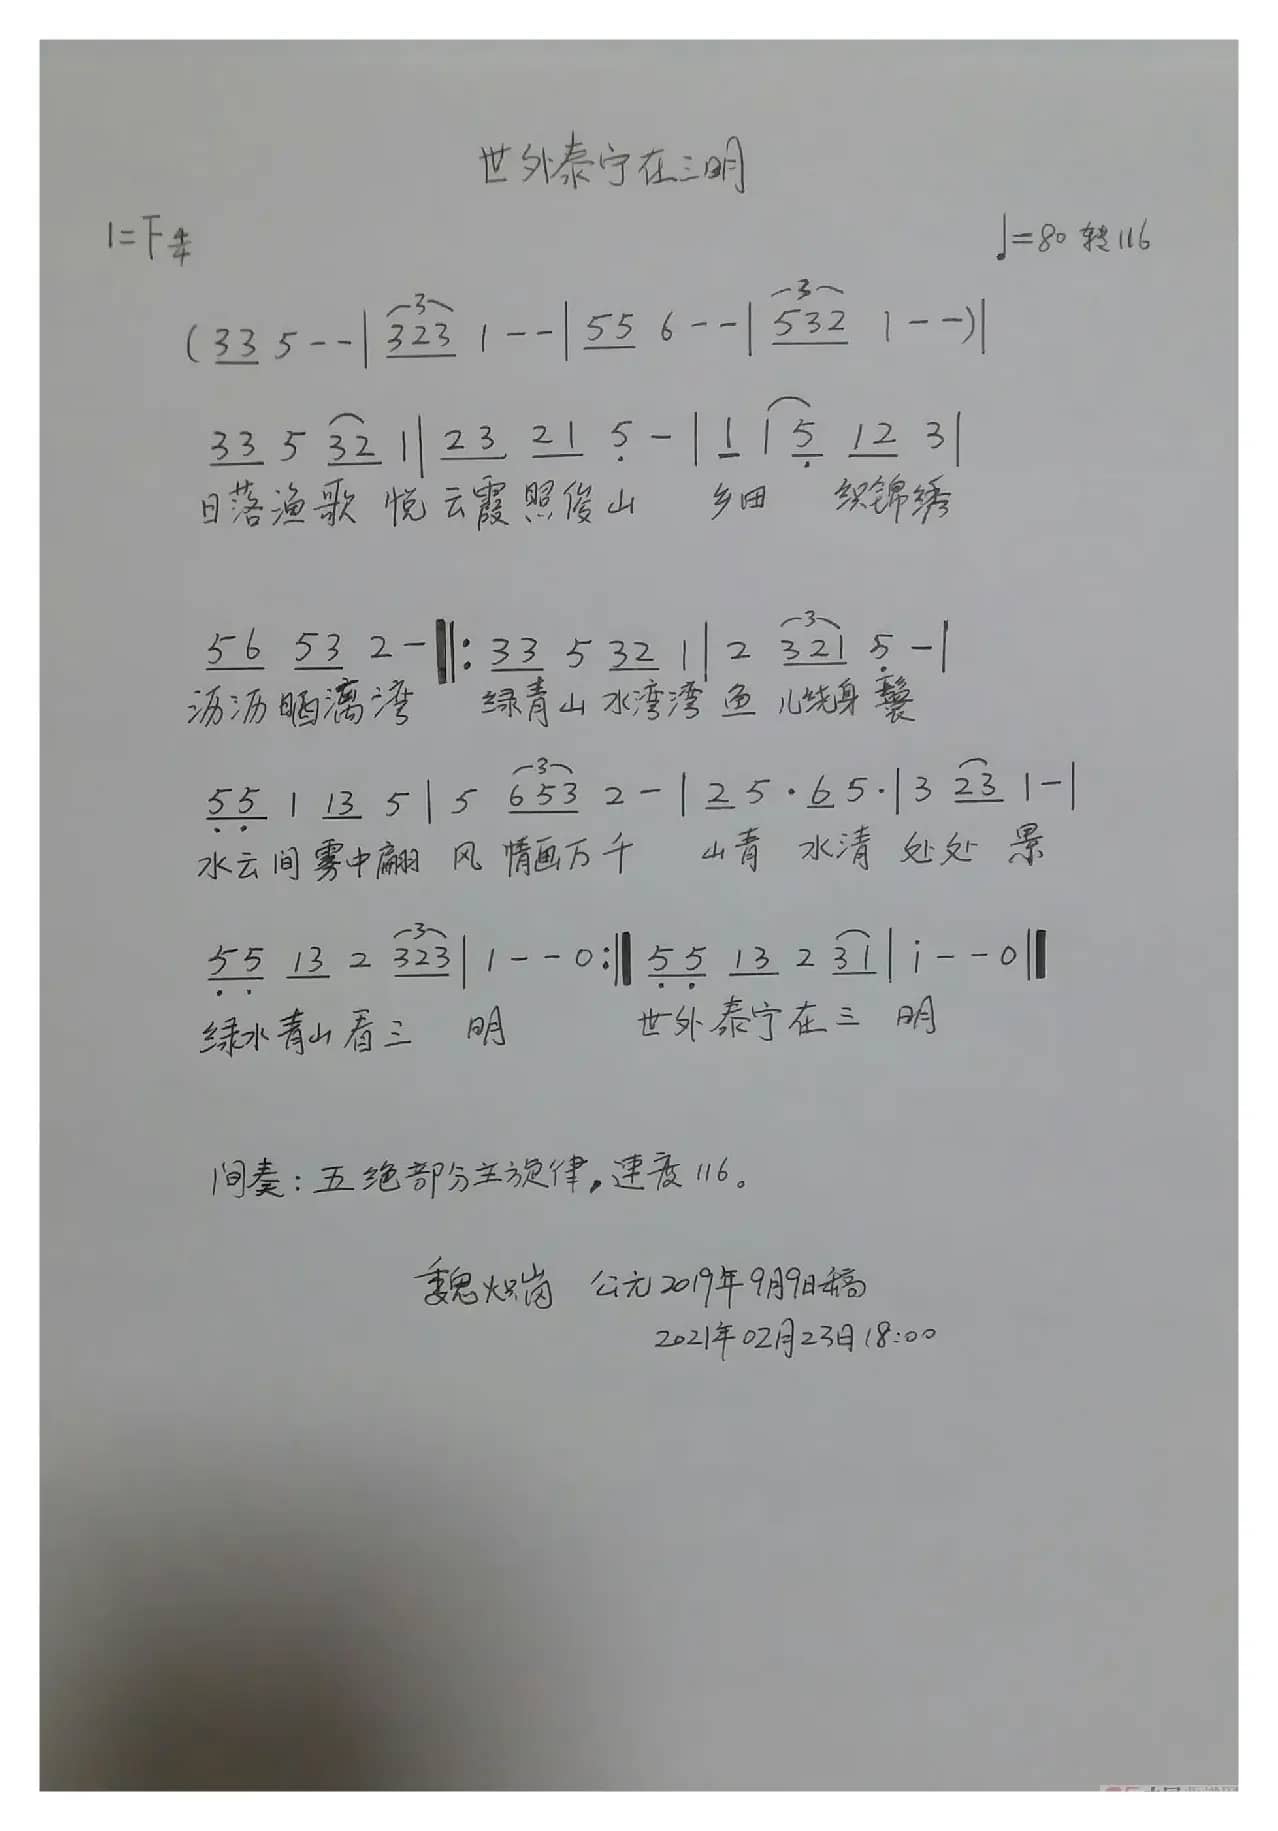 世外泰宁在三明
1=F 4/4 ♩=80 转116
(33 5--|323 1--|55 6--|532 1--)|
33 5 32 1|23 21 5-|1 1 5 12 3|
日落渔歌 悦 云霞照俊山 乡田 织锦绣
56 53 2-‖: 33 5 32 1|2 321 5-|
沥沥晒漓湾 绿青山水湾湾 鱼 儿绕身鬟
55 1 13 5|5 653 2-|2 5·6 5·|3 23 1-|
水云间雾中翩 风 情画万千 山青 水清 处处 景
55 13 2 323|1--0:‖ 55 13 2 31|i--0‖
绿水青山看三 明 世外泰宁在三 明
间奏：五绝部分主旋律，速度116。
魏炽岗 公元2019年9月9日稿
2021年02月23日18:00